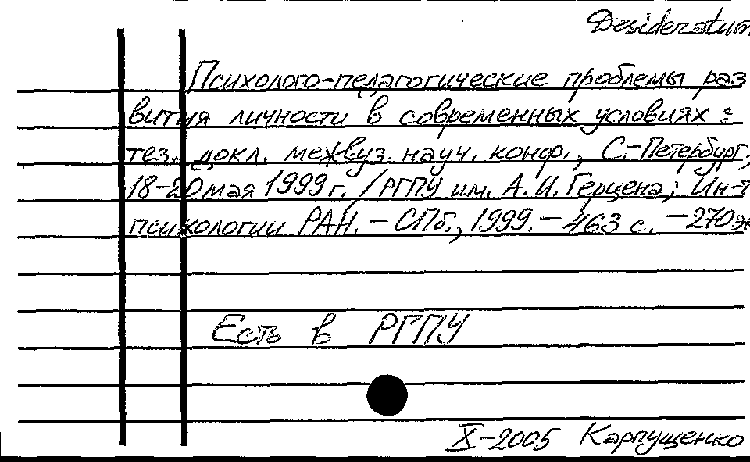 Desideratum
Психолого-педагогические проблемы раз
вития личности в современных условиях :
тез. докл. межвуз. науч. конф., С.-Петербург,
18-20 мая 1999 г. / РГПУ им. А. И. Герцена; Ин-т
психологии РАН. – СПб., 1999. – 463 с. – 270 э
Есть в РГПУ
X-2005 Карпущенко